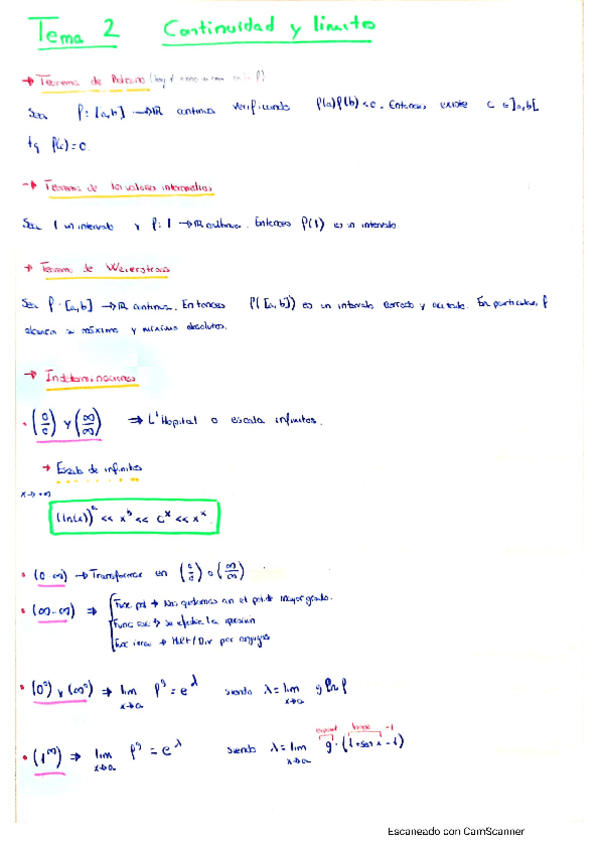 Tema 2 Continuidad y límites
→ Teorema de Bolzano (
Sea f: [a,b] → ℝ continua verificando f(a)f(b) < 0. Entonces existe c ∈ ]a,b[
tq f(c) = 0.
→ Teorema de los valores intermedios
Sea I un intervalo y f: I → ℝ continua. Entonces f(I) es un intervalo
→ Teorema de Weierstrass
Sea f: [a,b] → ℝ continua. Entonces f([a,b]) es un intervalo cerrado y acotado. En particular, f
alcanza su máximo y mínimo absolutos.
→ Indeterminaciones
• (0/0) y (∞/∞) ⇒ L'Hopital o escala infinitos.
→ Escala de infinitos
x→+∞
(ln(x))^a << x^b << c^x << x^x
• (0·∞) → Transformar en (0/0) o (∞/∞)
• (∞-∞) ⇒ Func pol → Nos quedamos con el pol de mayor grado.
Func rac → se efectúa la operación
Func irrac → Mult/Div por conjugado
• (0^0) y (∞^0) ⇒ lim x→a f^g = e^λ siendo λ = lim x→a g ln f
• (1^∞) ⇒ lim x→a f^g = e^λ siendo λ = lim x→a g·(1+sen x -1)
base -1
Escaneado con CamScanner